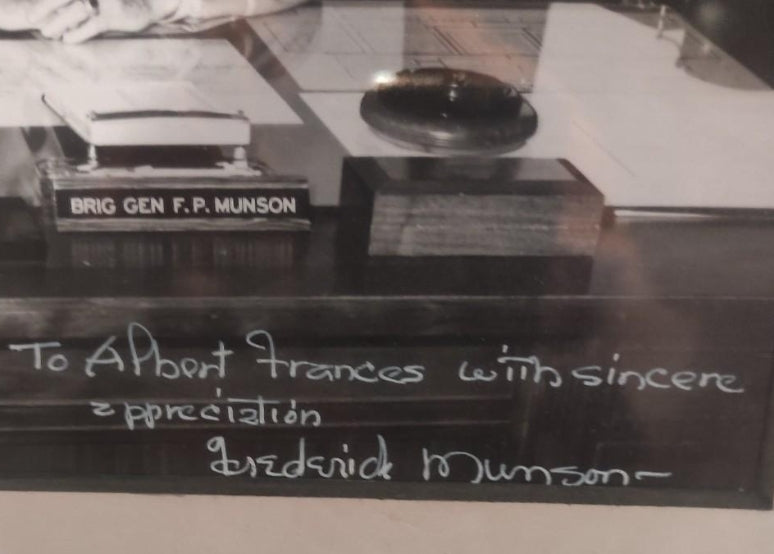 BRIG GEN F.P. MUNSON
To Albert Frances with sincere
appreciation
Frederick Munson